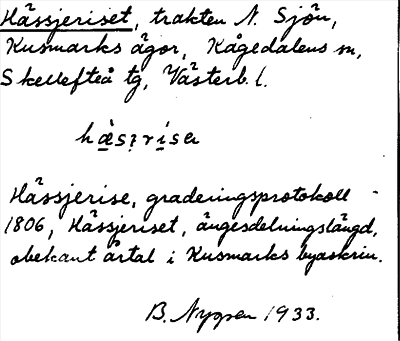 Hässjeriset, trakten N. Sjön,
Kusmarks ägor, Kågedalens sn,
Skellefteå tg, Västerb. l.
Hässjerise, graderingsprotokoll
1806, Hässjeriset, ängesdelningslängd,
obekant årtal i Kusmarks byaskrin.
B. Nygren 1933.